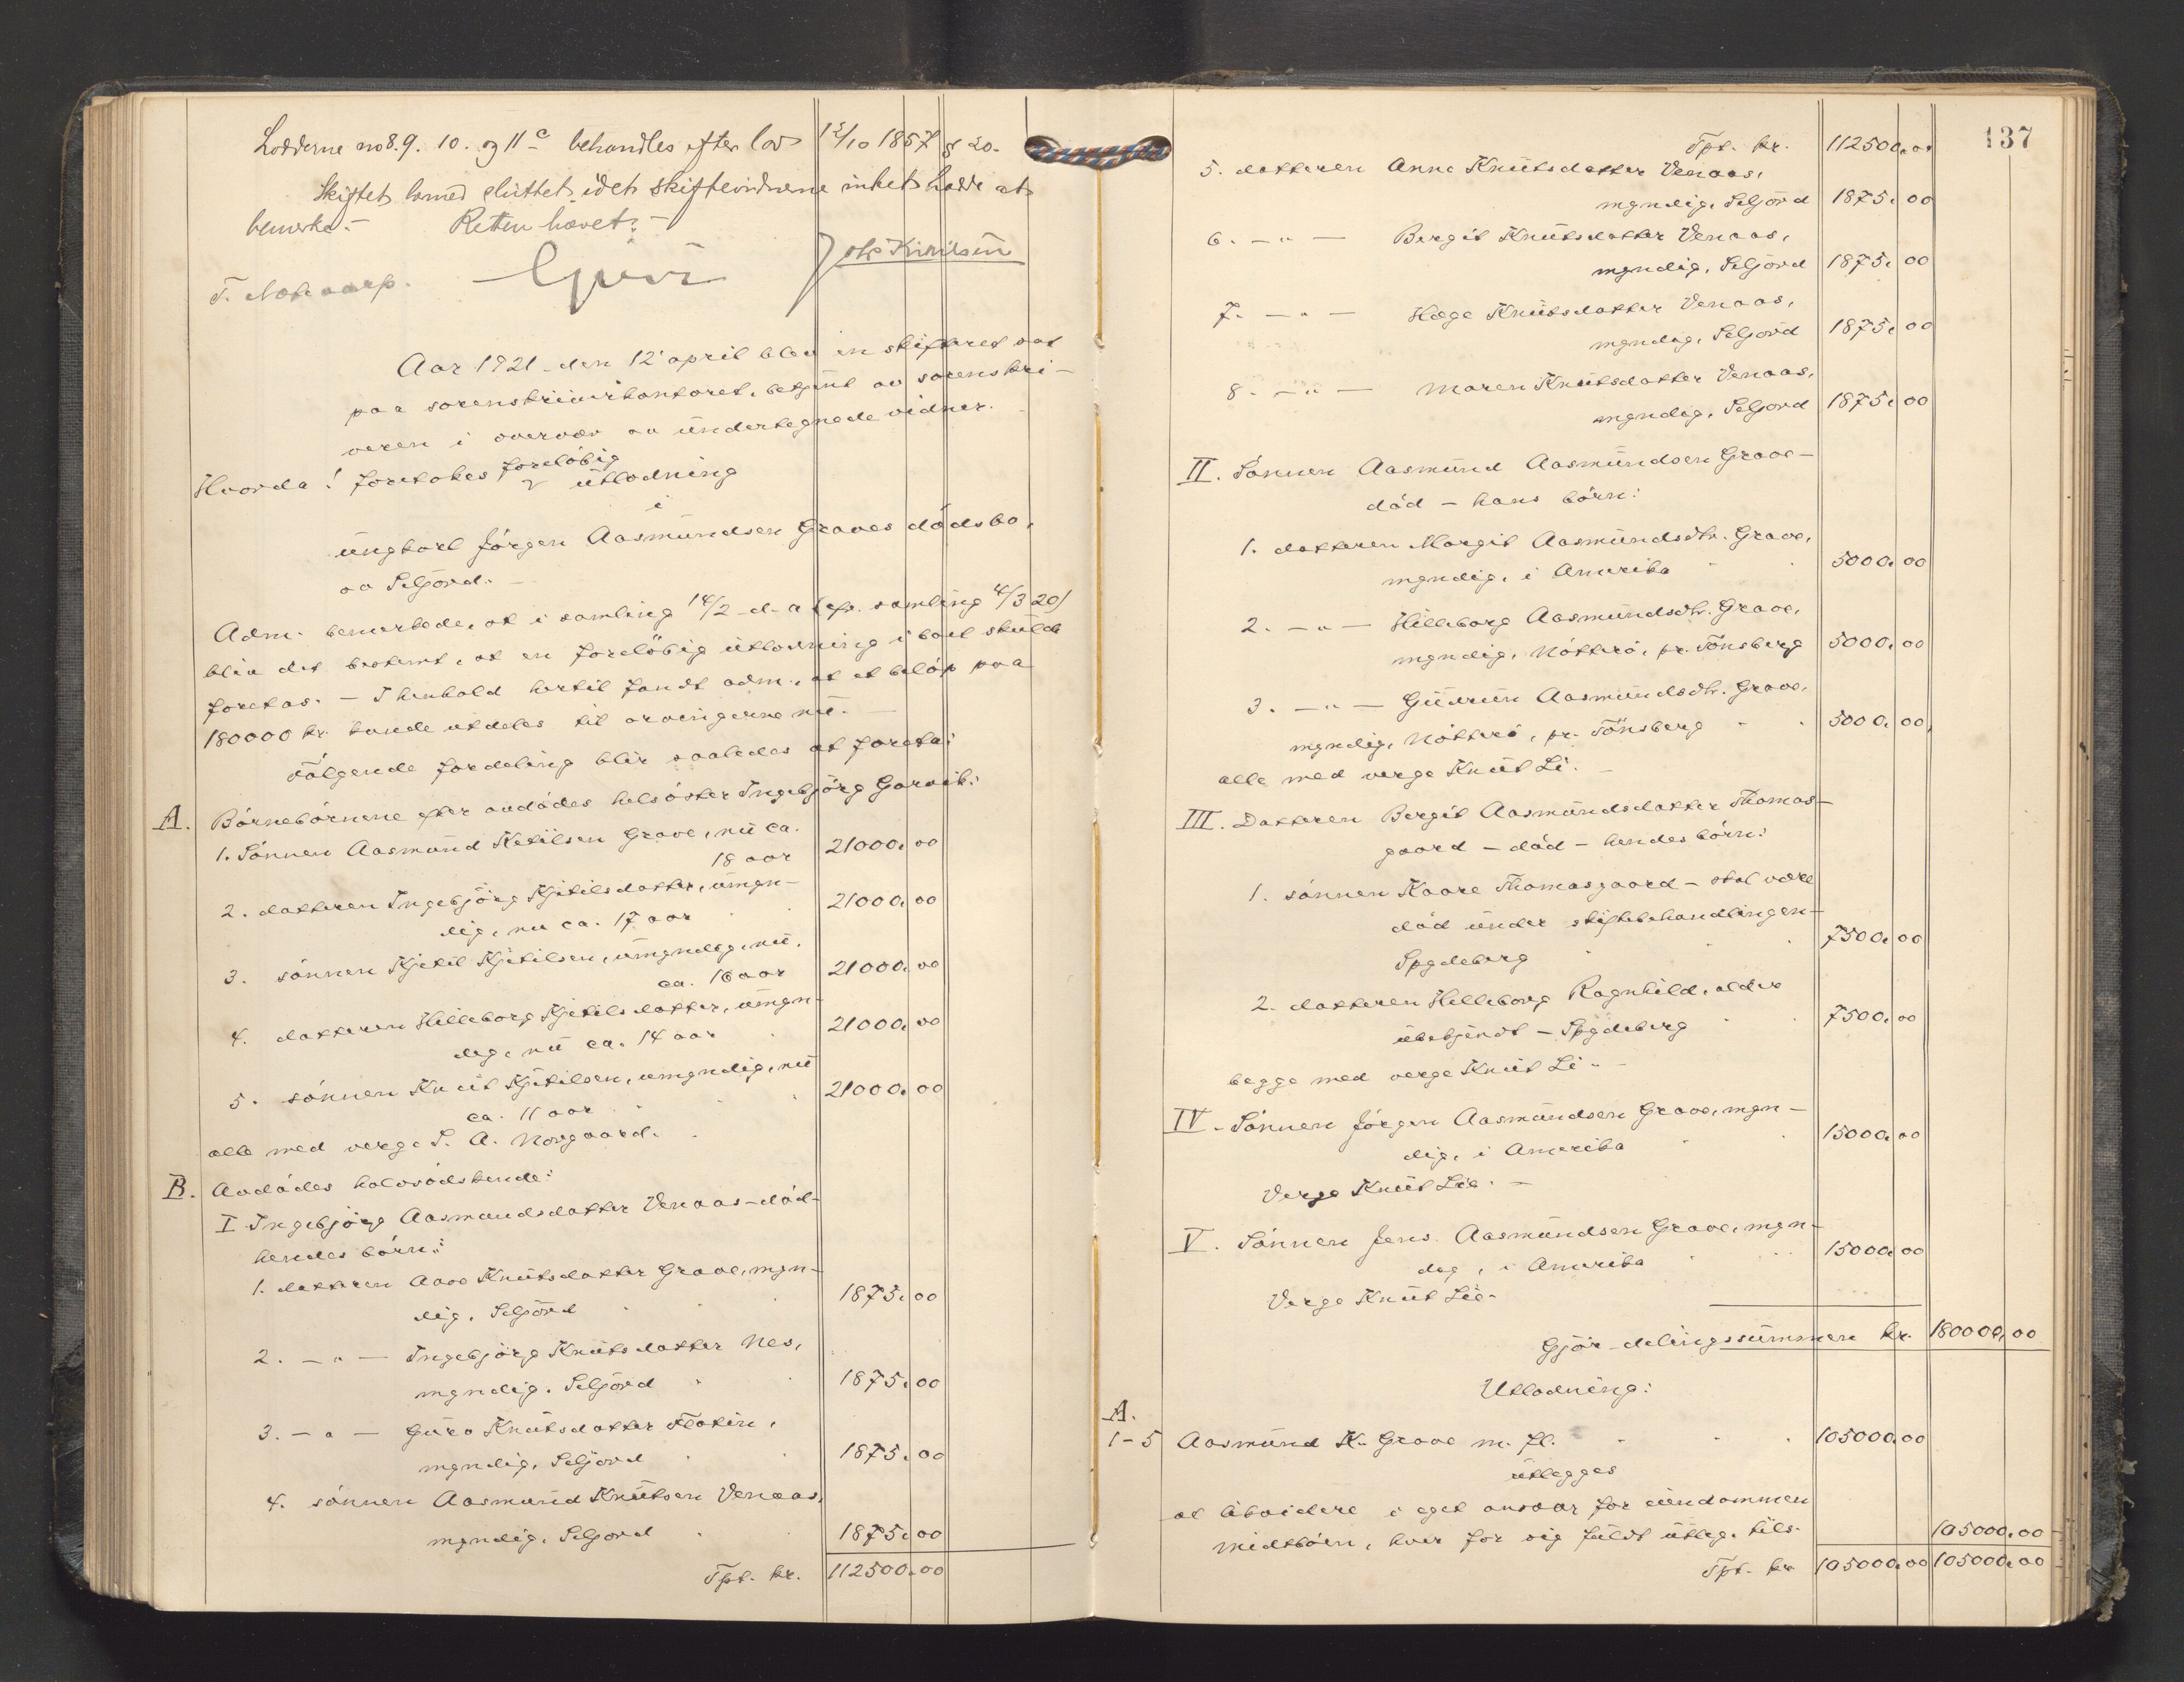 Lodderne no 8. 9. 10. og 11 c behandles efter lov 12/10 1857 § 20.
Skiftet dermed sluttet, idet skiftevidnerne intet hadde at
bemerke. - Retten hævet. -
Aar 1921 den 12' april blev en skifteret sat
paa sorenskriverkontoret, betjent av sorenskri-
veren i overvær av undertegnede vidner.
Hvorda! foretokes foreløbig utlodning
i
ungkarl Jørgen Aasmundsen Graves dødsbo,
av Seljord. -
Adm. bemerkede, at i samling 14/2 d. a. (cfr. samling 4/3 20)
blev det bestemt, at en foreløbig utlodning i boet skulde
foretas. - I henhold hertil fandt adm., at et beløp paa
180000 kr. kunde utdeles til arvingerne nu. -
Følgende fordeling blir saaledes at foreta:
A. Børnebørnene efter avdødes helsøster Ingebjørg Garvik:
1. Sønnen Aasmund Ketilsen Grave, nu ca.
18 aar 21000,00
2. datteren Ingebjørg Kjetilsdatter, umyn-
dig, nu ca. 17 aar 21000,00
3. sønnen Kjetil Kjetilsen, umyndig, nu
ca. 16 aar 21000,00
4. datteren Hilleborg Kjetilsdatter, umyn-
dig, nu ca. 14 aar 21000,00
5. sønnen Knut Kjetilsen, umyndig, nu
ca. 11 aar 21000,00
alle med verge S. A. Norgaard.
B. Avdødes halvsødskende:
I Ingebjørg Aasmundsdatter Venaas - død -
hendes børn:
1. datteren Aase Knutsdatter Grave, myn-
dig, Seljord 1875,00
2. - " - Ingebjørg Knutsdatter Nes,
myndig, Seljord 1875,00
3. - " - Guro Knutsdatter Flatin,
myndig, Seljord 1875,00
4. sønnen Aasmund Knutsen Venaas,
myndig, Seljord 1875,00
Tpt. kr. 112500,00
137
Tpt. kr. 112500,00
5. datteren Anne Knutsdatter Venaas,
myndig, Seljord 1875,00
6. - " - Bergit Knutsdatter Venaas,
myndig, Seljord 1875,00
7. - " - Hæge Knutsdatter Venaas,
myndig, Seljord 1875,00
8. - " - Maren Knutsdatter Venaas,
myndig, Seljord 1875,00
II. Sønnen Aasmund Aasmundsen Grave -
død - hans børn:
1. datteren Margit Aasmundsdtr. Grave,
myndig, i Amerika 5000,00
2. - " - Hilleborg Aasmundsdtr. Grave,
myndig, Nøtterø, pr. Tønsberg 5000,00
3. - " - Gudrun Aasmundsdtr. Grave,
myndig, Nøtterø, pr. Tønsberg 5000,00
alle med verge Knut Li. -
III. Datteren Bergit Aasmundsdatter Thomas-
gaard - død - hendes børn:
1. sønnen Kaare Thomasgaard - skal være
død under skiftebehandlingen -
Spydeberg 7500,00
2. datteren Hilleborg Ragnhild, alder
ubekjendt - Spydeberg 7500,00
begge med verge Knut Li. -
IV. Sønnen Jørgen Aasmundsen Grave, myn-
dig, i Amerika 15000,00
Verge Knut Lie. -
V. Sønnen Jens Aasmundsen Grave, myn-
dig, i Amerika 15000,00
Verge Knut Lie.
Gjør delingssummen kr. 180000,00
Utlodning:
A.
1-5 Aasmund K. Grave m. fl. 105000,00
utlegges
at likvidere i eget ansvar for eiendommen
Midtbøen, hver for sig fuldt utlæg, tils. 105000,00
Tpt. kr. 105000,00 105000,00